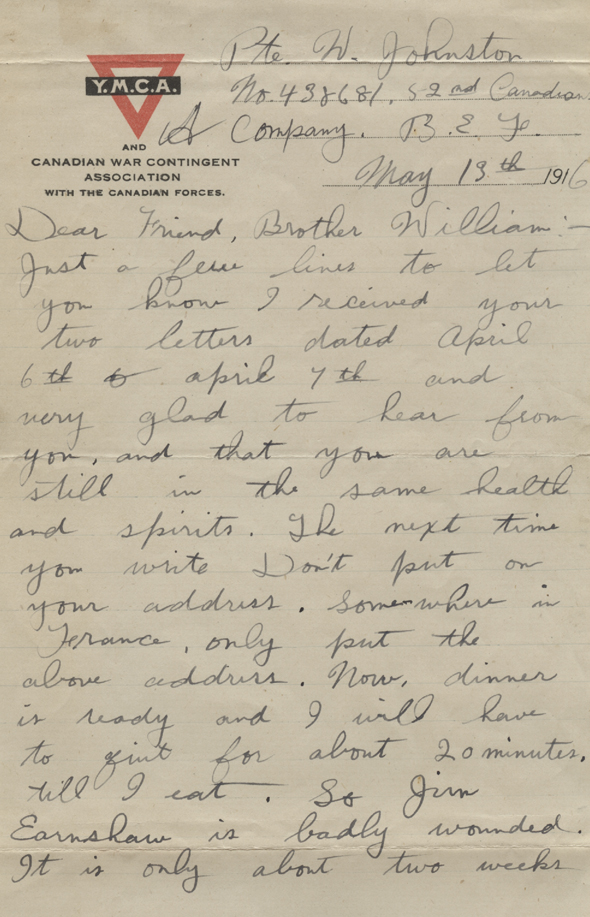 Pte. W. Johnston
No. 438681, 52nd Canadian
A Company. B. E. F.
May 13th 1916
Y.M.C.A.
AND
CANADIAN WAR CONTINGENT
ASSOCIATION
WITH THE CANADIAN FORCES.
Dear Friend, Brother William:-
Just a few lines to let
you know I received your
two letters dated April
6th & april 7th and
very glad to hear from
you, and that you are
still in the same health
and spirits. The next time
you write Don't put on
your address. Somewhere in
France, only put the
above address. Now, dinner
is ready and I will have
to quit for about 20 minutes,
till I eat. So Jim
Earnshaw is badly wounded.
It is only about two weeks